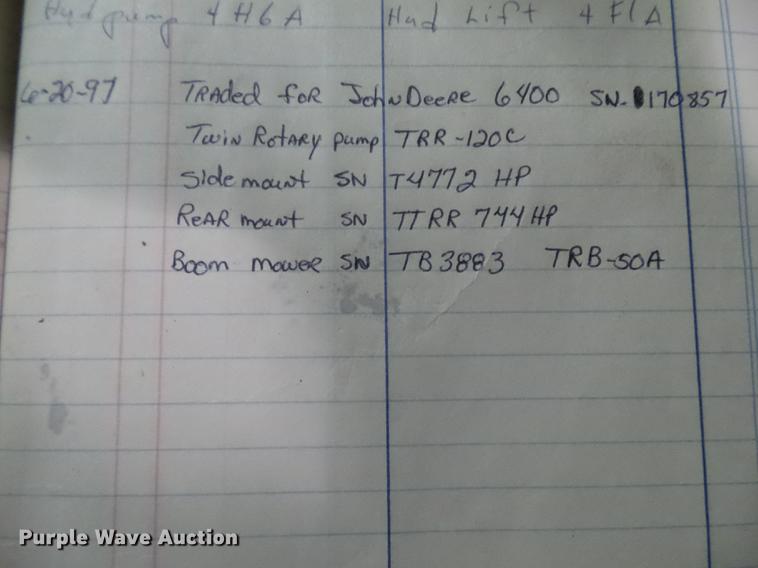 Hyd pump 4 H6A Hyd Lift 4 F1A
6-20-97 TRAded foR John DeeRe 6400 SN- 170857
Twin RotARy pump TRR-120C
Side mount SN T4772 HP
ReAR mount SN TTRR 744 HP
Boom moweR SN TB3883 TRB-50A
Purple Wave Auction